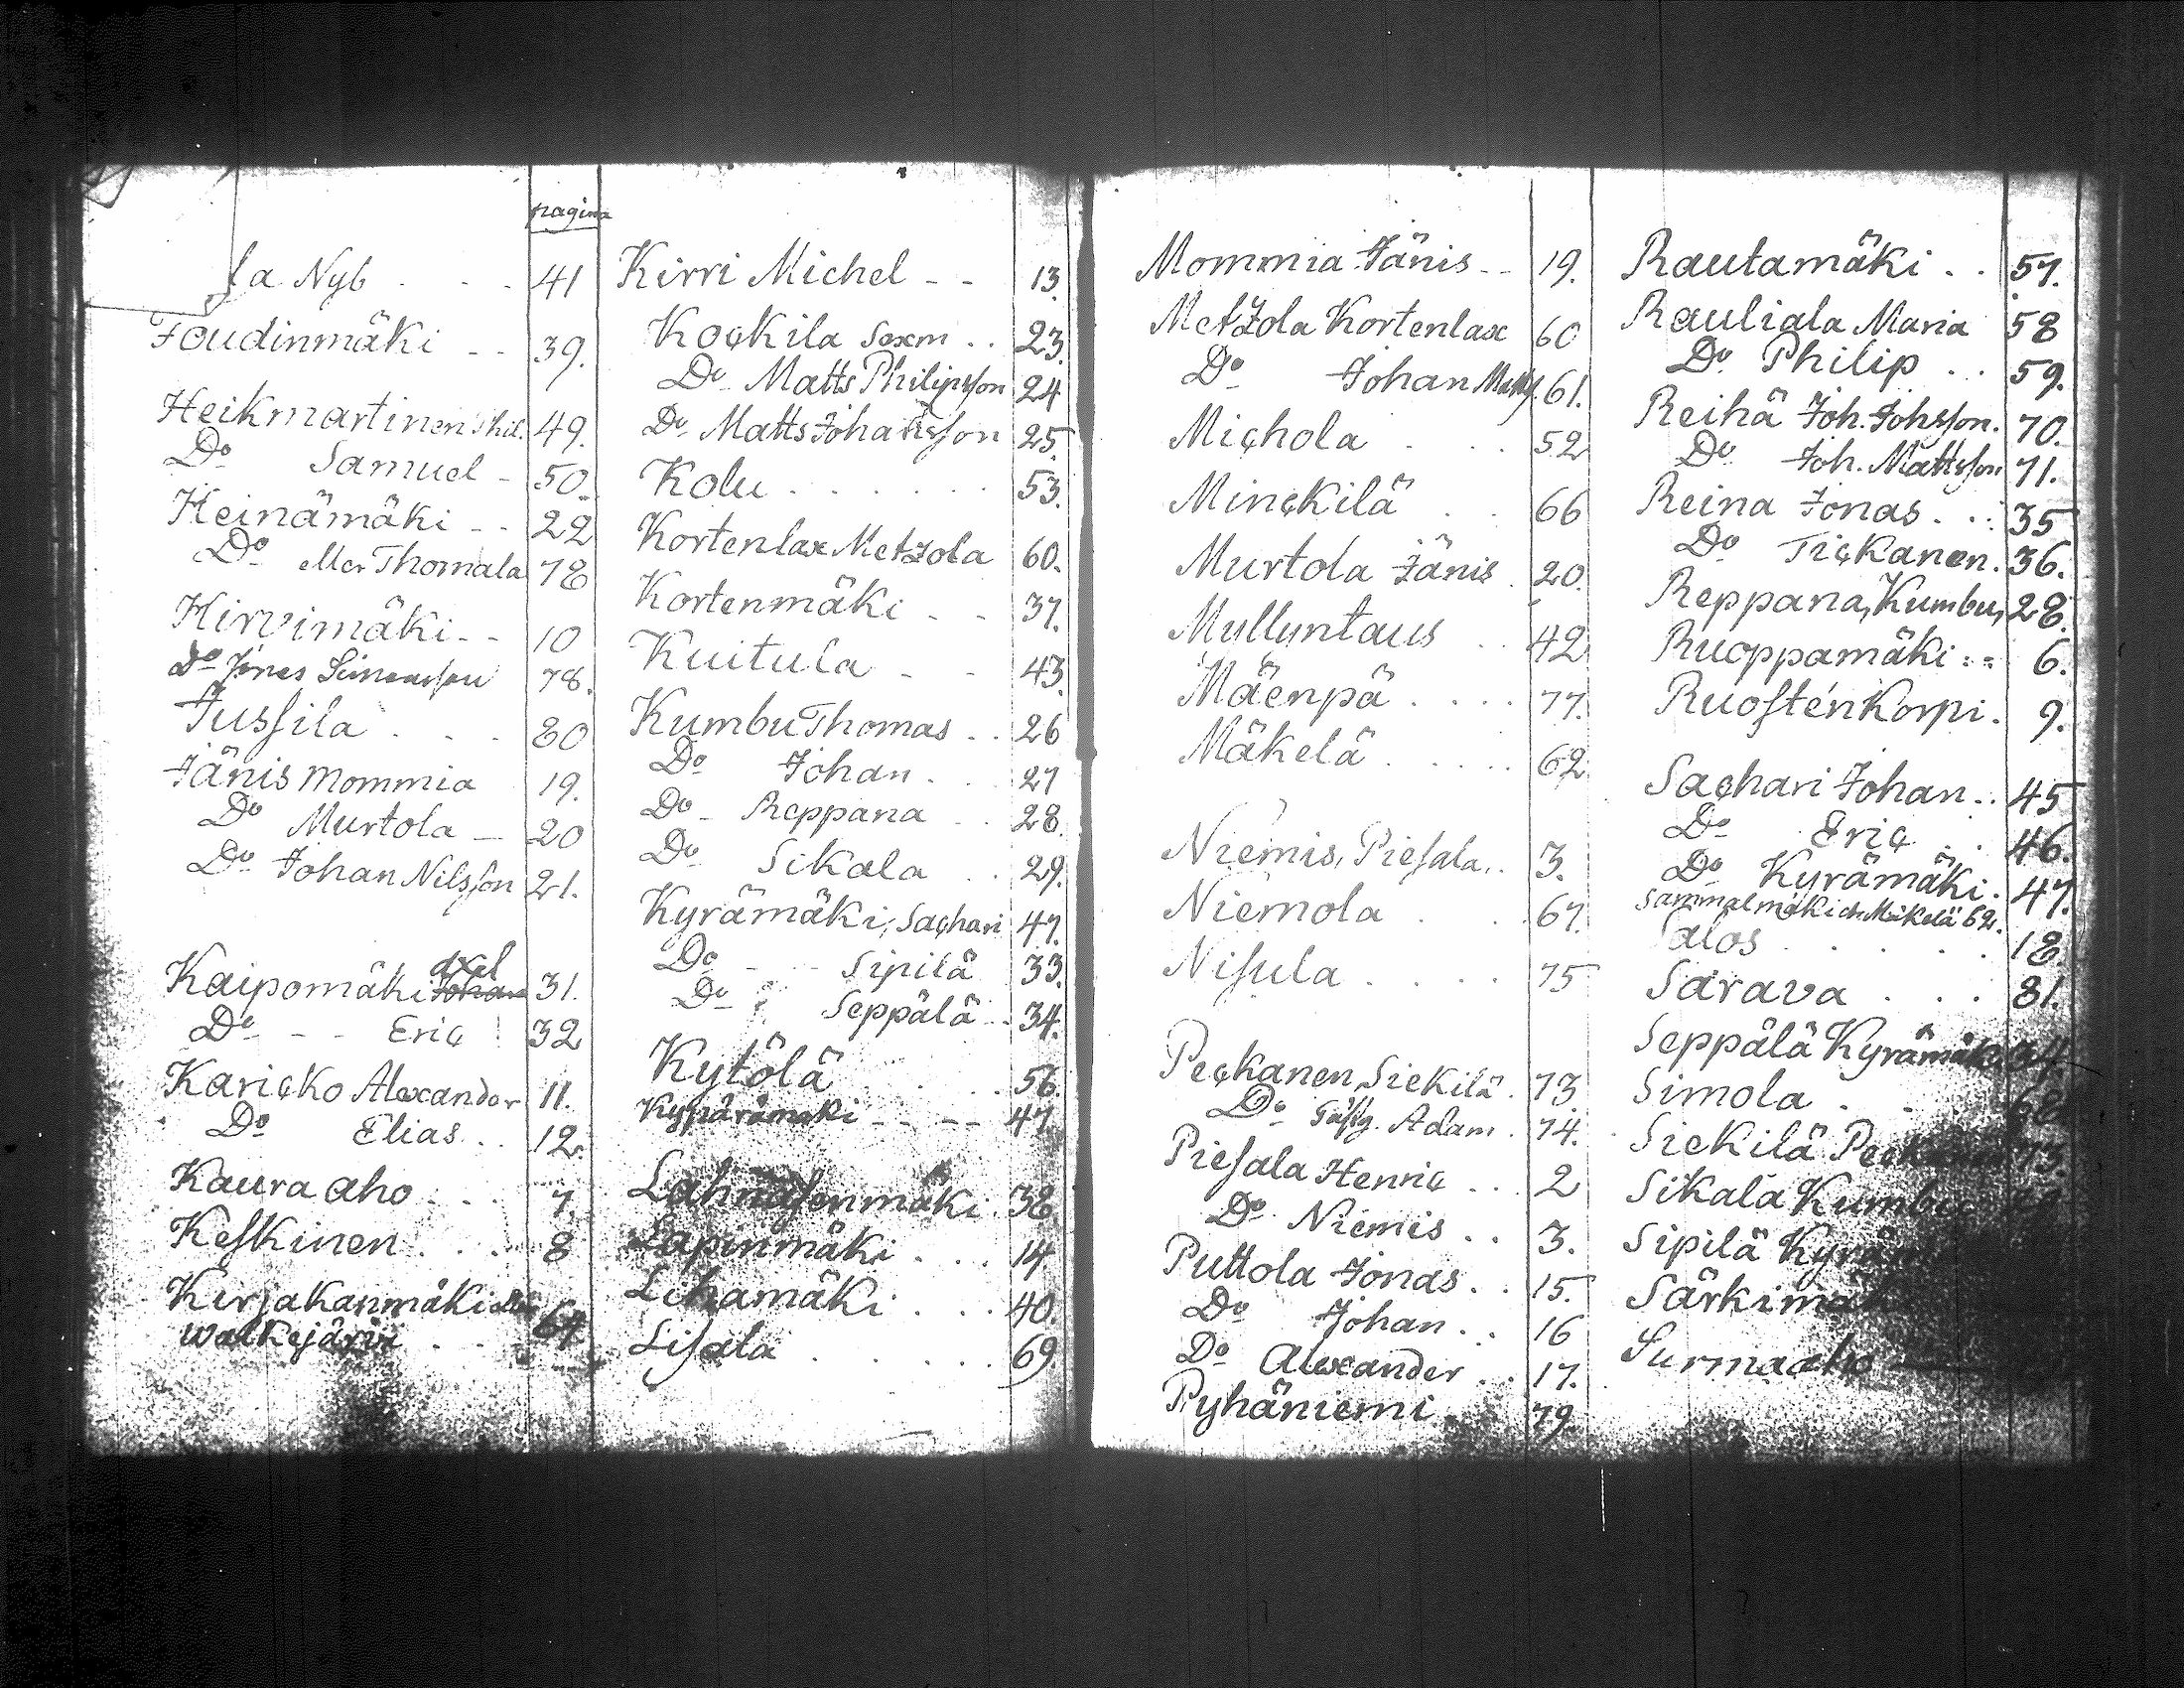 pagina
la Nyb . . . 41
Joudinmäki - - 39.
Heikmartinen Phil. 49.
Do Samuel - 50.
Heinämäki - - 22
Do eller Thomala 78
Hirvimäki - - 10
Do Jonas Simonsson 78.
Jussila . . . 80
Jänis Mommia 19.
Do Murtola - 20
Do Johan Nilsson 21.
Kaipomäki Axel 31.
Do - - Eric 32
Karicko Alexander 11.
Do Elias . . 12.
Kaura aho . . . 7.
Keskinen . . . 8
Kirjakanmäki eller
Walkejärvi . . 64.
Kirri Michel - - 13.
Kockila Sexm . . 23.
Do Matts Philipsson 24
Do Matts Johansson 25.
Kolu . . . . . . 53.
Kortenlax Metzola 60.
Kortenmäki - - 37.
Kuitula - - 43.
Kumbu Thomas . . 26
Do Johan . . . 27
Do - Reppana . . 28.
Do Sikala . . 29.
Kyrämäki, Sachari 47.
Do - - Sipilä 33.
Do Seppälä . . 34.
Kytölä . . . . 56.
Kypärämäki - - - - 47.
Lahnasenmäki . 38.
Lapinmäki . . . 14
Lihamäki . . . 40.
Lisala . . . . . 69.
Mommia Jänis - - 19.
Metzola Kortenlax 60
Do Johan Matts. 61.
Michola . . . 52
Minckilä . . 66
Murtola Jänis . 20.
Mulluntaus . . 42
Mäenpä . . . . 77.
Mäkelä . . . . . 62.
Niemis, Piesala . . 3.
Niemola . . . . 67.
Nisula . . . . . 75
Peckanen, Siekilä . 73
Do Adam . 74.
Piesala Henric . . . 2
Do Niemis . . 3.
Puttola Jonas . . 15.
Do Johan . . 16
Do Alexander . . 17.
Pyhäniemi . 79
Rautamäki . . 57.
Rauliala Maria 58
Do Philip . . 59.
Reihä Joh. Johsson. 70.
Do Joh. Mattsson 71.
Reina Jonas . . . 35
Do Tickanen . 36.
Reppana, Kumbu, 28.
Ruoppamäki . . . 6.
Ruosténkorpi . 9.
Sachari Johan . . 45
Do Eric . . 46.
Do Kyrämäki . 47.
Sammalmäki ell. Mäkelä 62.
Salos . . . . . 18.
Sarava . . . 81.
Seppälä Kyrämäki 34
Simola . . 68
Siekilä Peckanen 73.
Sikala Kumbu
Sipilä
Särkimäki
Surmaaho